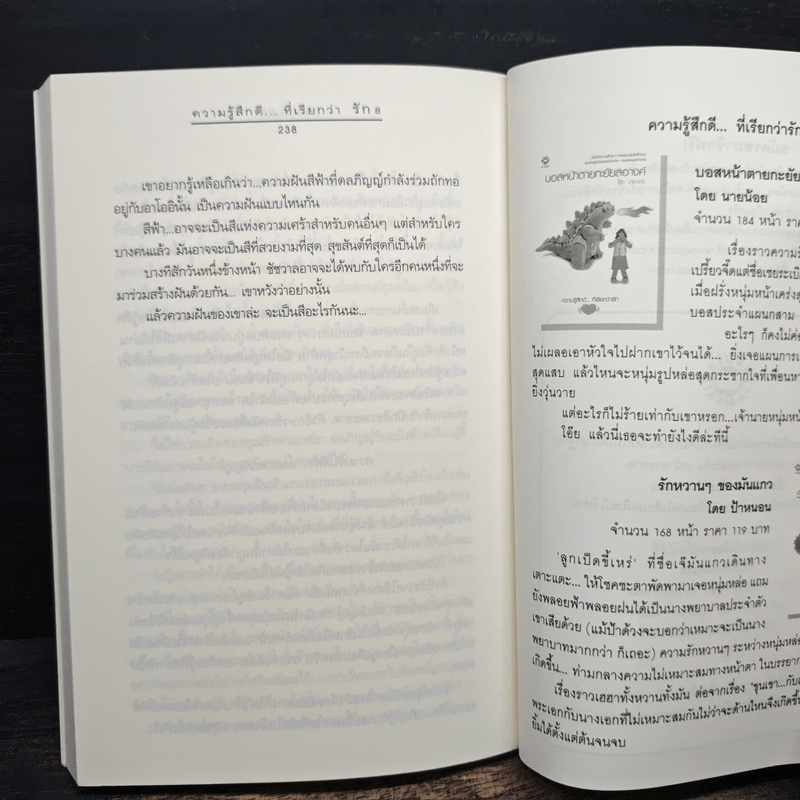 ความรู้สึกดี... ที่เรียกว่า รัก 8
238
เขาอยากรู้เหลือเกินว่า...ความฝันสีฟ้าที่ดลภิญญ์กำลังร่วมถักทอ
อยู่กับอาโออินั้น เป็นความฝันแบบไหนกัน
สีฟ้า...อาจจะเป็นสีแห่งความเศร้าสำหรับคนอื่นๆ แต่สำหรับใคร
บางคนแล้ว มันอาจจะเป็นสีที่สวยงามที่สุด สุขสันต์ที่สุดก็เป็นได้
บางทีสักวันหนึ่งข้างหน้า ชัชวาลอาจจะได้พบกับใครอีกคนหนึ่งที่จะ
มาร่วมสร้างฝันด้วยกัน... เขาหวังว่าอย่างนั้น
แล้วความฝันของเขาล่ะ จะเป็นสีอะไรกันนะ...
ความรู้สึกดี... ที่เรียกว่ารัก
บอสหน้าตายกะยัยลอาจค์
ความรู้สึกดี... ที่เรียกว่ารัก
บอสหน้าตายกะยัย
โดย นายน้อย
จำนวน 184 หน้า ราค
เรื่องราวความรั
เปรี้ยวจี๊ดแต่ชื่อเชยระเบิ
เมื่อฝรั่งหนุ่มหน้าเคร่งสุ
บอสประจำแผนกสาม
อะไรๆ ก็คงไม่ค่อ
ไม่เผลอเอาหัวใจไปฝากเขาไว้จนได้... ยิ่งเจอแผนการเ
สุดแสบ แล้วไหนจะหนุ่มรูปหล่อสุดกระชากใจที่เพื่อนหา
ยิ่งวุ่นวาย
แต่อะไรก็ไม่ร้ายเท่ากับเขาหรอก...เจ้านายหนุ่มหน้
โอ๊ย แล้วนี่เธอจะทำยังไงดีล่ะทีนี้
รักหวานๆ ของมันแกว
โดย ป้าหนอน
จำนวน 168 หน้า ราคา 119 บาท
'ลูกเป็ดขี้เหร่' ที่ชื่อเจ๊มันแกวเดินทาง
เตาะแตะ... ให้โชคชะตาพัดพามาเจอหนุ่มหล่อ แถม
ยังพลอยฟ้าพลอยฝนได้เป็นนางพยาบาลประจำตัว
เขาเสียด้วย (แม้ป้าด้วงจะบอกว่าเหมาะจะเป็นนาง
พยาบาทมากกว่า ก็เถอะ) ความรักหวานๆ ระหว่างหนุ่มหล่อ
เกิดขึ้น... ท่ามกลางความไม่เหมาะสมทางหน้าตา ในบรรยาก
เรื่องราวเฮฮาทั้งหวานทั้งมัน ต่อจากเรื่อง 'ขุนเขา...กับเ
พระเอกกับนางเอกที่ไม่เหมาะสมกันไม่ว่าจะด้านไหนจึงเกิดขึ้น
ยิ้มได้ตั้งแต่ต้นจนจบ